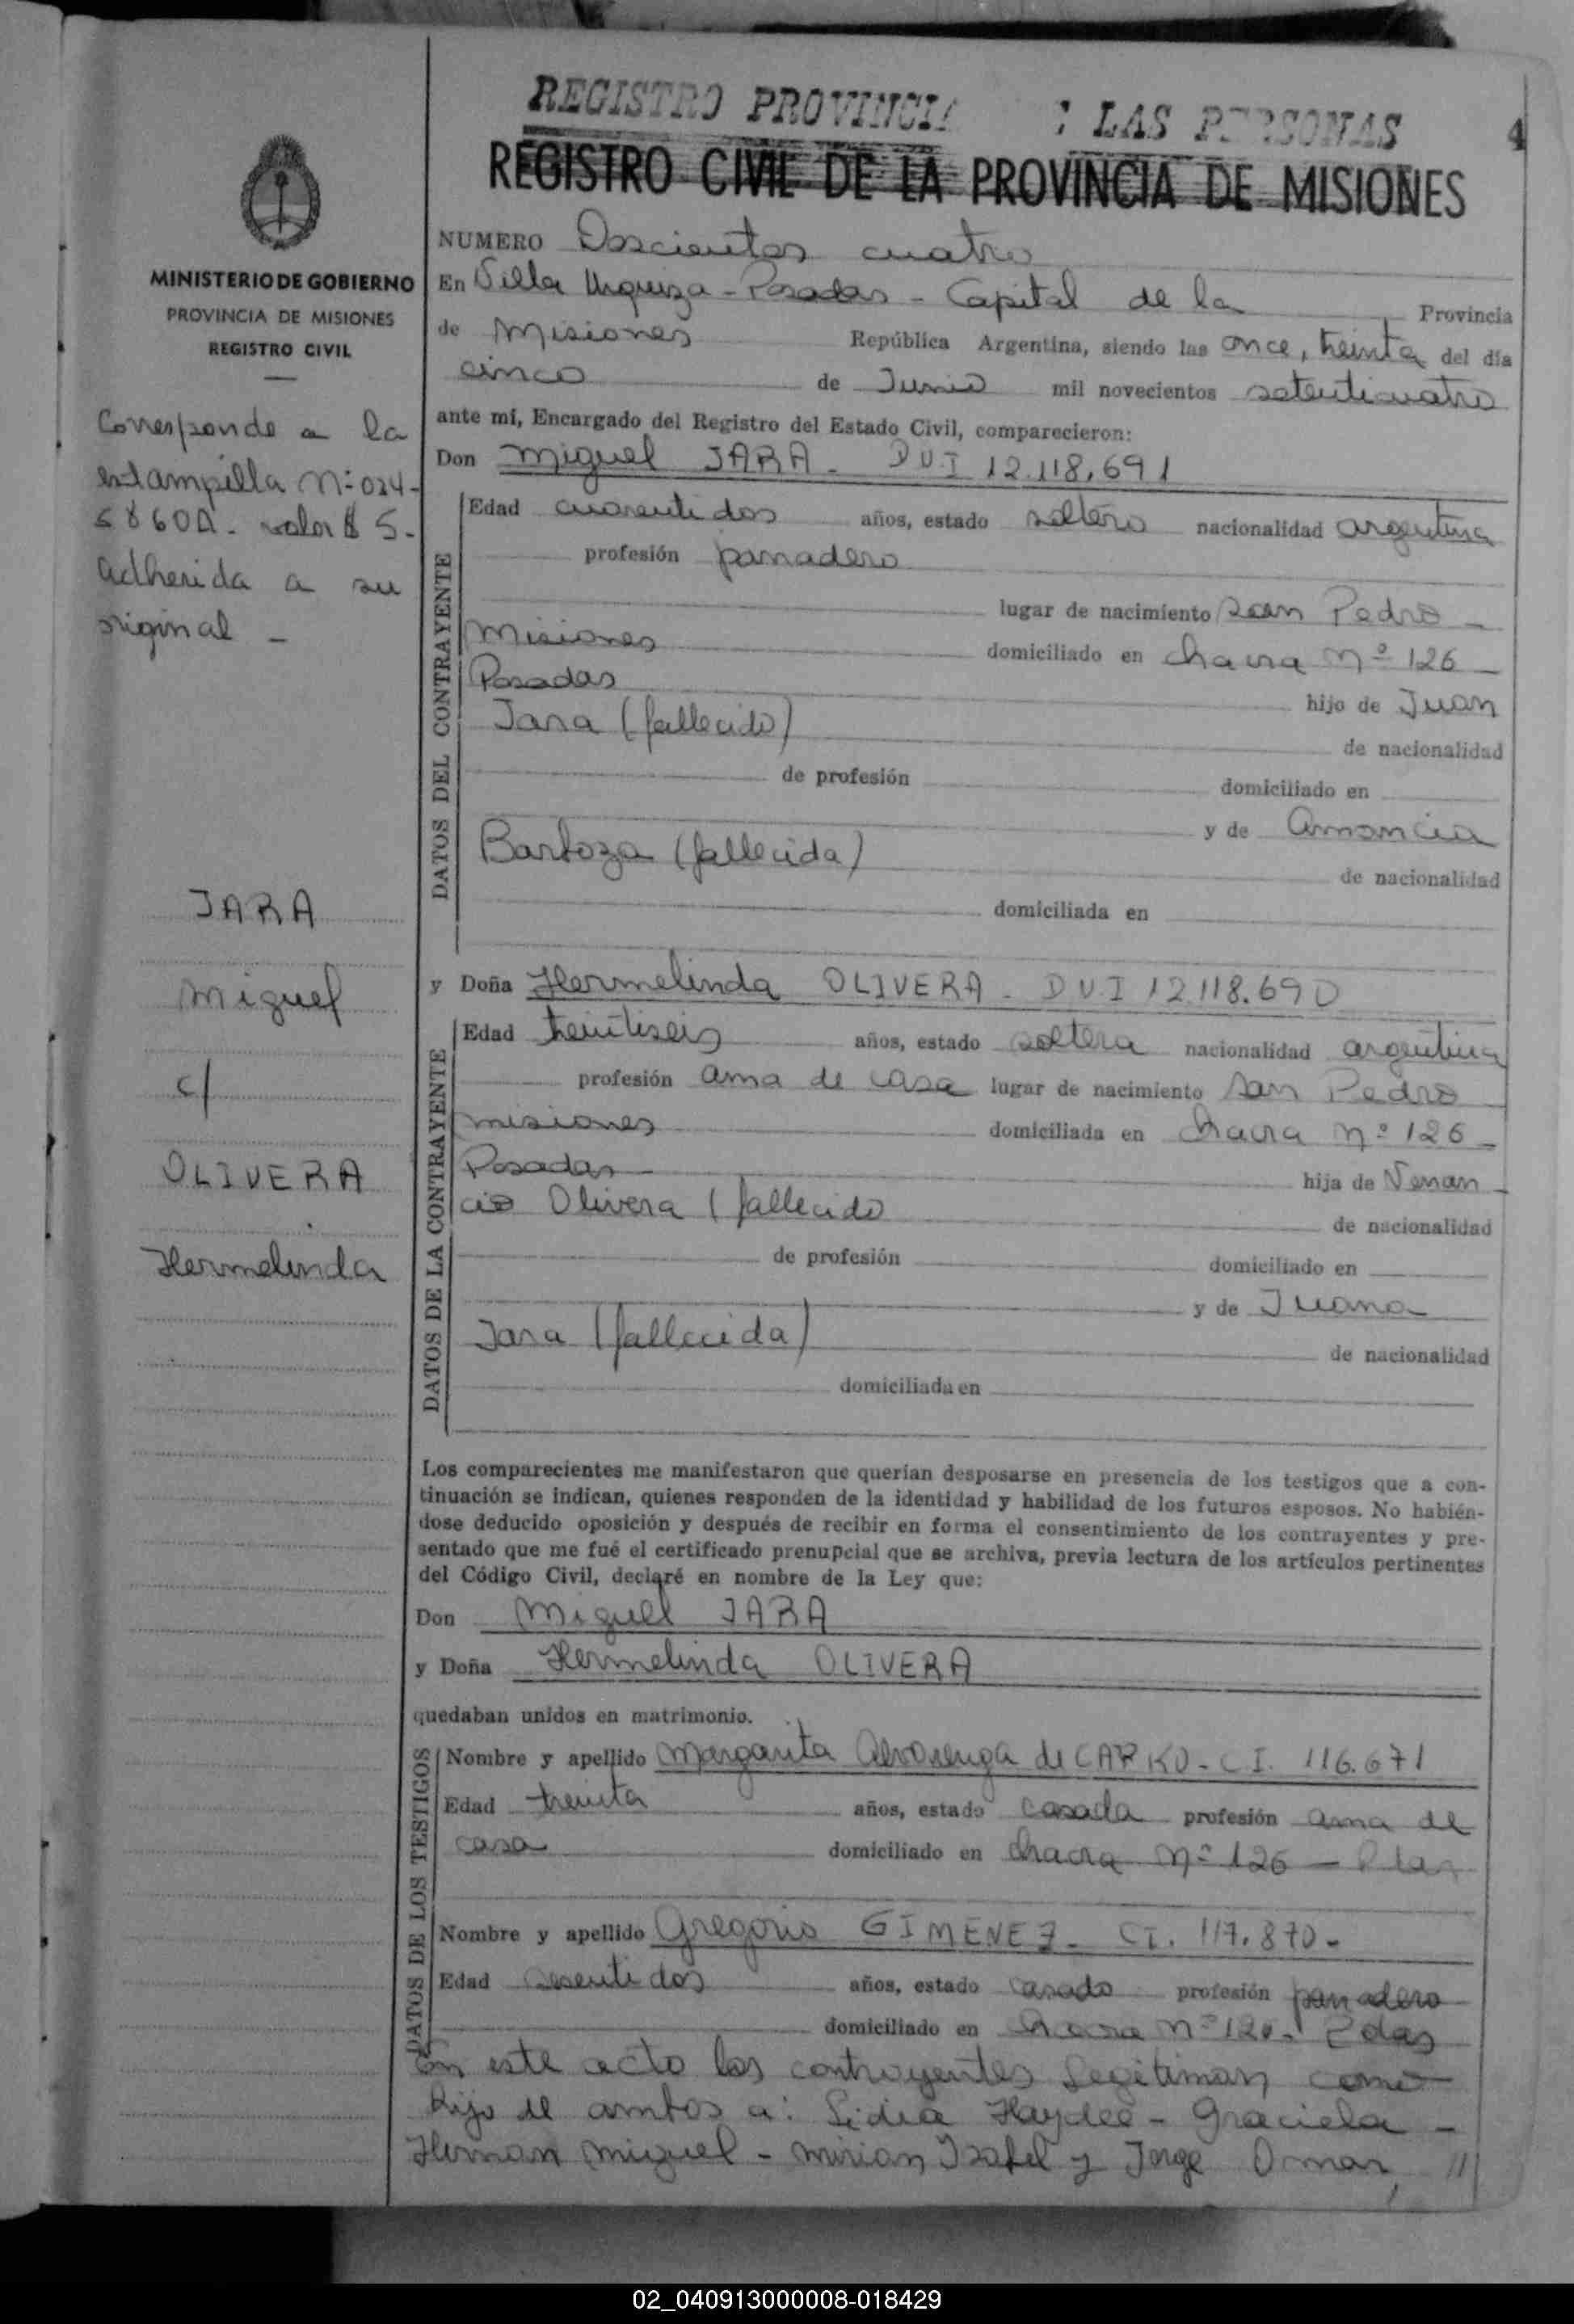 REGISTRO PROVINCIA LAS PERSONAS
4
REGISTRO CIVIL DE LA PROVINCIA DE MISIONES
MINISTERIO DE GOBIERNO
PROVINCIA DE MISIONES
REGISTRO CIVIL
Corresponde a la
estampilla Nº 024-
valor $ 5.-
adherida a su
original -
JARA
Miguel
c/
OLIVERA
Hermelinda
NUMERO Doscientos cuatro
En Villa Urquiza - Posadas - Capital de la Provincia
de Misiones República Argentina, siendo las once, treinta del día
cinco de Junio mil novecientos setenticuatro
ante mí, Encargado del Registro del Estado Civil, comparecieron:
Don Miguel JARA - DUI 12.118.691
DATOS DEL CONTRAYENTE
Edad cuarentidos años, estado soltero nacionalidad argentina
profesión panadero
lugar de nacimiento San Pedro -
Misiones domiciliado en chacra Nº 126 -
Posadas hijo de Juan
Jara (fallecido) de nacionalidad
de profesión domiciliado en
y de Amancia
Barboza (fallecida) de nacionalidad
domiciliada en
y Doña Hermelinda OLIVERA - DUI 12.118.690
DATOS DE LA CONTRAYENTE
Edad treintiseis años, estado soltera nacionalidad argentina
profesión ama de casa lugar de nacimiento San Pedro
misiones domiciliada en chacra Nº 126 -
Posadas hija de Venan-
cio Olivera (fallecido de nacionalidad
de profesión domiciliado en
y de Juana
Jara (fallecida) de nacionalidad
domiciliada en
Los comparecientes me manifestaron que querían desposarse en presencia de los testigos que a con-
tinuación se indican, quienes responden de la identidad y habilidad de los futuros esposos. No habién-
dose deducido oposición y después de recibir en forma el consentimiento de los contrayentes y pre-
sentado que me fué el certificado prenupcial que se archiva, previa lectura de los artículos pertinentes
del Código Civil, declaré en nombre de la Ley que:
Don Miguel JARA
y Doña Hermelinda OLIVERA
quedaban unidos en matrimonio.
DATOS DE LOS TESTIGOS
Nombre y apellido Margarita de - CI. 116.671
Edad treinta años, estado casada profesión ama de
casa domiciliado en chacra Nº 126 -
Nombre y apellido Gregorio GIMENEZ - CI. 117.870 -
Edad sesentidos años, estado casado profesión panadero
domiciliado en chacra Nº Pdas
En este acto los contrayentes legitiman como
hijo de ambos a: Lidia Haydee - Graciela -
Hernan Miguel - Mirian Isabel y Jorge Omar, //
02_040913000008-018429